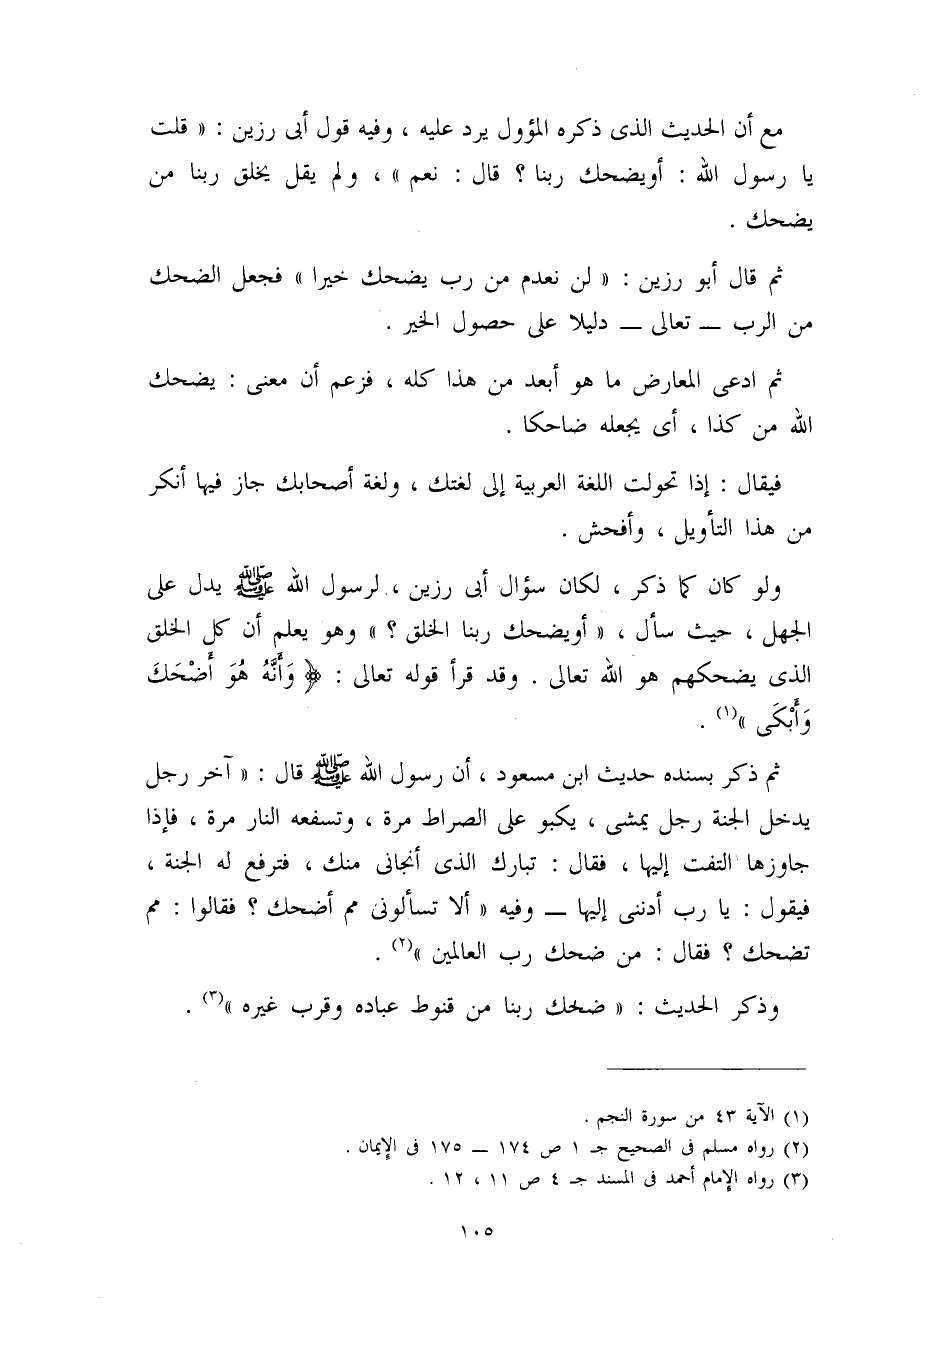 مع أن الحديث الذى ذكره المؤول يرد عليه ، وفيه قول أبى رزين : « قلت
يا رسول الله : أويضحك ربنا ؟ قال : نعم » ، ولم يقل يخلق ربنا من
يضحك .
ثم قال أبو رزين : « لن نعدم من رب يضحك خيرا » فجعل الضحك
من الرب ــ تعالى ــ دليلا على حصول الخير .
ثم ادعى المعارض ما هو أبعد من هذا كله ، فزعم أن معنى : يضحك
الله من كذا ، أى يجعله ضاحكا .
فيقال : إذا تحولت اللغة العربية إلى لغتك ، ولغة أصحابك جاز فيها أنكر
من هذا التأويل ، وأفحش .
ولو كان كما ذكر ، لكان سؤال أبى رزين ، لرسول الله ﷺ يدل على
الجهل ، حيث سأل ، « أويضحك ربنا الخلق ؟ » وهو يعلم أن كل الخلق
الذى يضحكهم هو الله تعالى . وقد قرأ قوله تعالى : ﴿ وَأَنَّهُ هُوَ أَضْحَكَ
وَأَبْكَى »(١) .
ثم ذكر بسنده حديث ابن مسعود ، أن رسول الله ﷺ قال : « آخر رجل
يدخل الجنة رجل يمشى ، يكبو على الصراط مرة ، وتسفعه النار مرة ، فإذا
جاوزها التفت إليها ، فقال : تبارك الذى أنجانى منك ، فترفع له الجنة ،
فيقول : يا رب أدننى إليها ــ وفيه « ألا تسألونى مم أضحك ؟ فقالوا : مم
تضحك ؟ فقال : من ضحك رب العالمين »(٢) .
وذكر الحديث : « ضحك ربنا من قنوط عباده وقرب غيره »(٣) .
(١) الآية ٤٣ من سورة النجم .
(٢) رواه مسلم فى الصحيح جـ ١ ص ١٧٤ ــ ١٧٥ فى الإيمان .
(٣) رواه الإمام أحمد فى المسند جـ ٤ ص ١١ ، ١٢ .
١٠٥